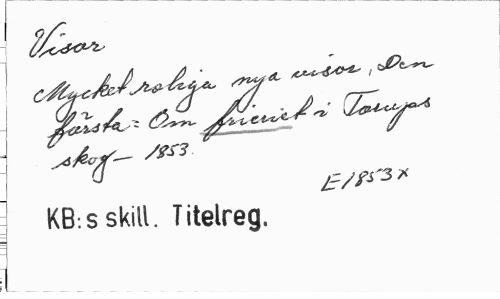 Visor
Mycket roliga nya visor, Den
första: Om frieriet i Tarups
skog - 1853.
E1853x
KB:s skill. Titelreg.